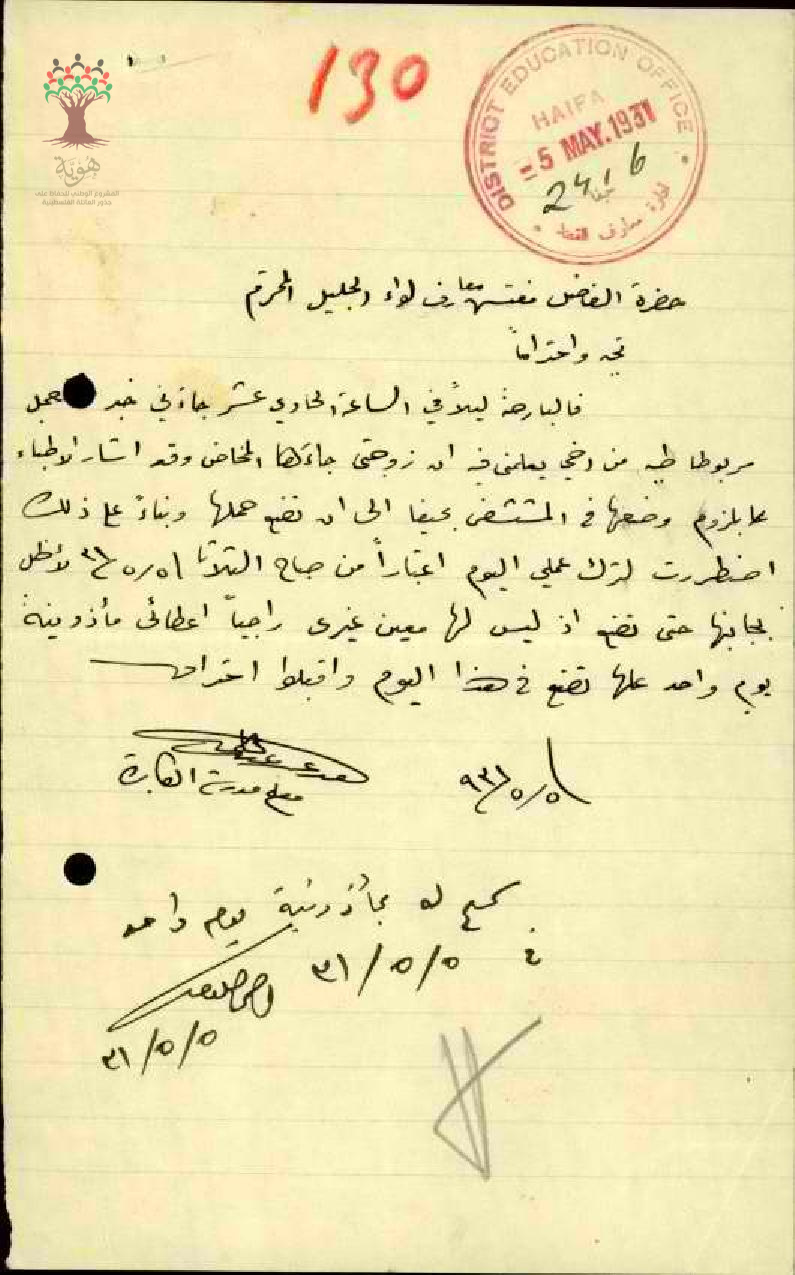 130
DISTRICT EDUCATION OFFICE
HAIFA
5 MAY.1931
24/6
إدارة معارف القضاء
هُويّة
المشروع الوطني للحفاظ على
جذور العائلة الفلسطينية
حضرة الفاضل مفتش معارف لواء الجليل المحترم
تحية واحتراماً
فالبارحة ليلاً في الساعة الحادي عشر جاءني خبر
مربوطا طيه من اخي يعلمني فيه ان زوجتي جاءها المخاض وقد اشار الاطباء
بلزوم وضعها في المستشفى بحيفا الى ان تضع حملها وبناءً على ذلك
اضطررت لترك عملي اليوم اعتباراً من صباح الثلاثا ٥/٥/٣١ لأظل
بجانبها حتى تضع اذ ليس لها معين غيري راجياً اعطائي مأذونية
يوم واحد علها تضع في هذا اليوم واقبلوا احترامي
٥/٥/٩٣١
معلم مدرسة
يسمح له بمأذونية يوم واحد
في ٥/٥/٣١
٥/٥/٣١